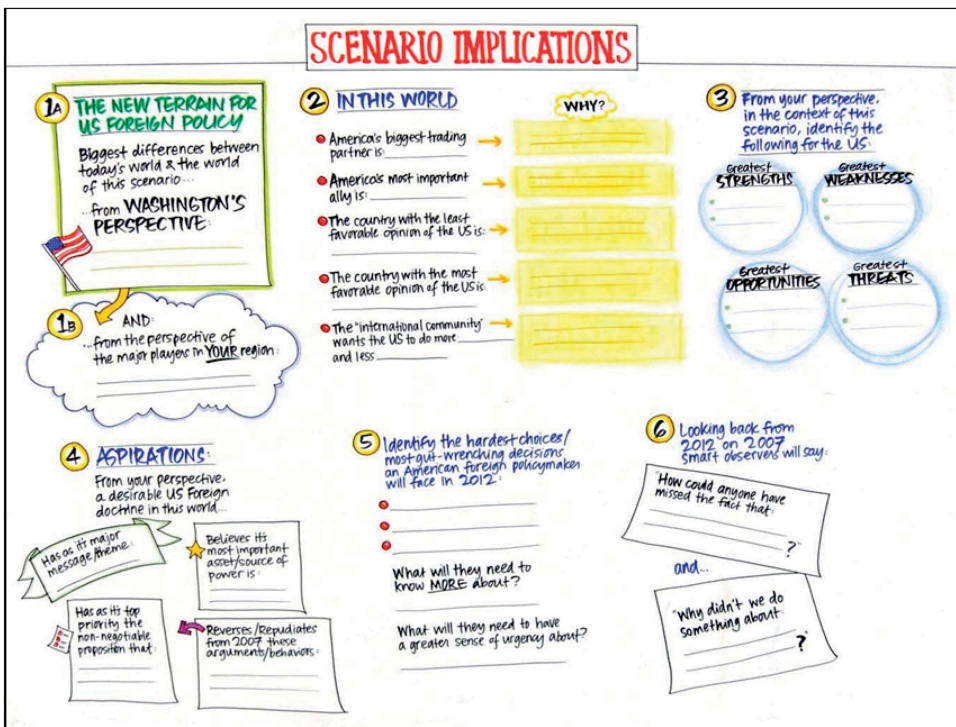 SCENARIO IMPLICATIONS
1A
THE NEW TERRAIN FOR
US FOREIGN POLICY
Biggest differences between
today's world & the world
of this scenario...
...from WASHINGTON'S
PERSPECTIVE:
1B
AND:
...from the perspective of
the major players in YOUR region:
2
IN THIS WORLD
WHY?
America's biggest trading
partner is:
America's most important
ally is:
The country with the least
favorable opinion of the US is:
The country with the most
favorable opinion of the US is:
The "international community"
wants the US to do more
and less
3
From your perspective,
in the context of this
scenario, identify the
following for the US:
Greatest
STRENGTHS
Greatest
WEAKNESSES
Greatest
OPPORTUNITIES
Greatest
THREATS
4
ASPIRATIONS:
From your perspective,
a desirable US Foreign
doctrine in this world...
Has as it's major
message/theme:
Believes it's
most important
asset/source of
power is:
Has as it's top
priority the
non-negotiable
proposition that:
Reverses/Repudiates
from 2007 these
arguments/behaviors:
5
Identify the hardest choices/
most gut-wrenching decisions
an American foreign policymaker
will face in 2012:
What will they need to
know MORE about?
What will they need to have
a greater sense of urgency about?
6
Looking back from
2012 on 2007
smart observers will say:
"How could anyone have
missed the fact that:
?"
and...
"Why didn't we do
something about:
?"